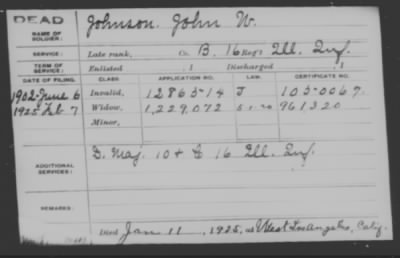 DEAD
NAME OF SOLDIER: Johnson John W.
SERVICE: Late rank, Co. B. 16 Reg't Ill. Inf.
TERM OF SERVICE: Enlisted , 1 Discharged
DATE OF FILING. CLASS APPLICATION NO. LAW. CERTIFICATE NO.
1902-June 6 Invalid, 1286514 J 105-0067.
1925 Feb 7 Widow, 1,229,072 961320
Minor,
ADDITIONAL SERVICES: D. Maj. 10 + & 16 Ill. Inf.
REMARKS:
Died Jan 11, 1925, at West Los Angeles, Calif.